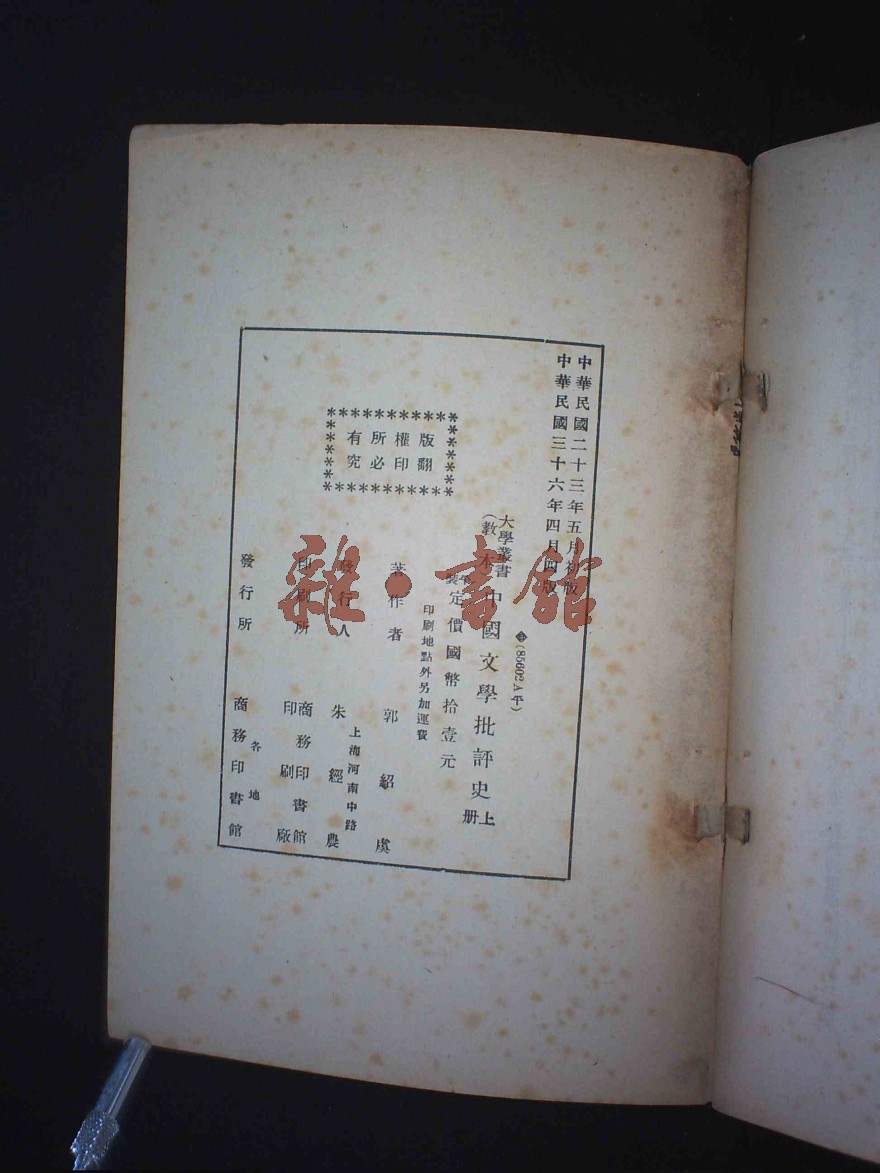 中華民國二十三年五月初版
中華民國三十六年四月四版
(85602A平)
大學叢書
(教本)
中國文學批評史上册
裝定價國幣拾壹元
印刷地點外另加運費
著作者 郭紹虞
發行人 朱經農
上海河南中路
印刷所 商務印書館
印刷廠
發行所 商務印書館
各地
版權所有
翻印必究
雜·書館